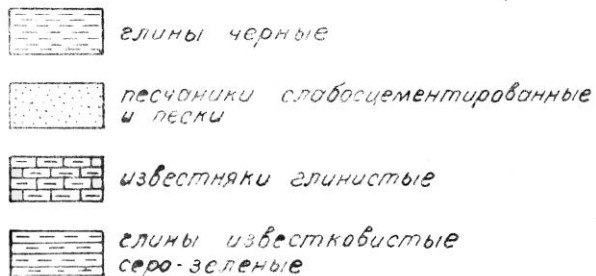 глины черные
песчаники слабосцементированные
и пески
известняки глинистые
глины известковистые
серо-зеленые